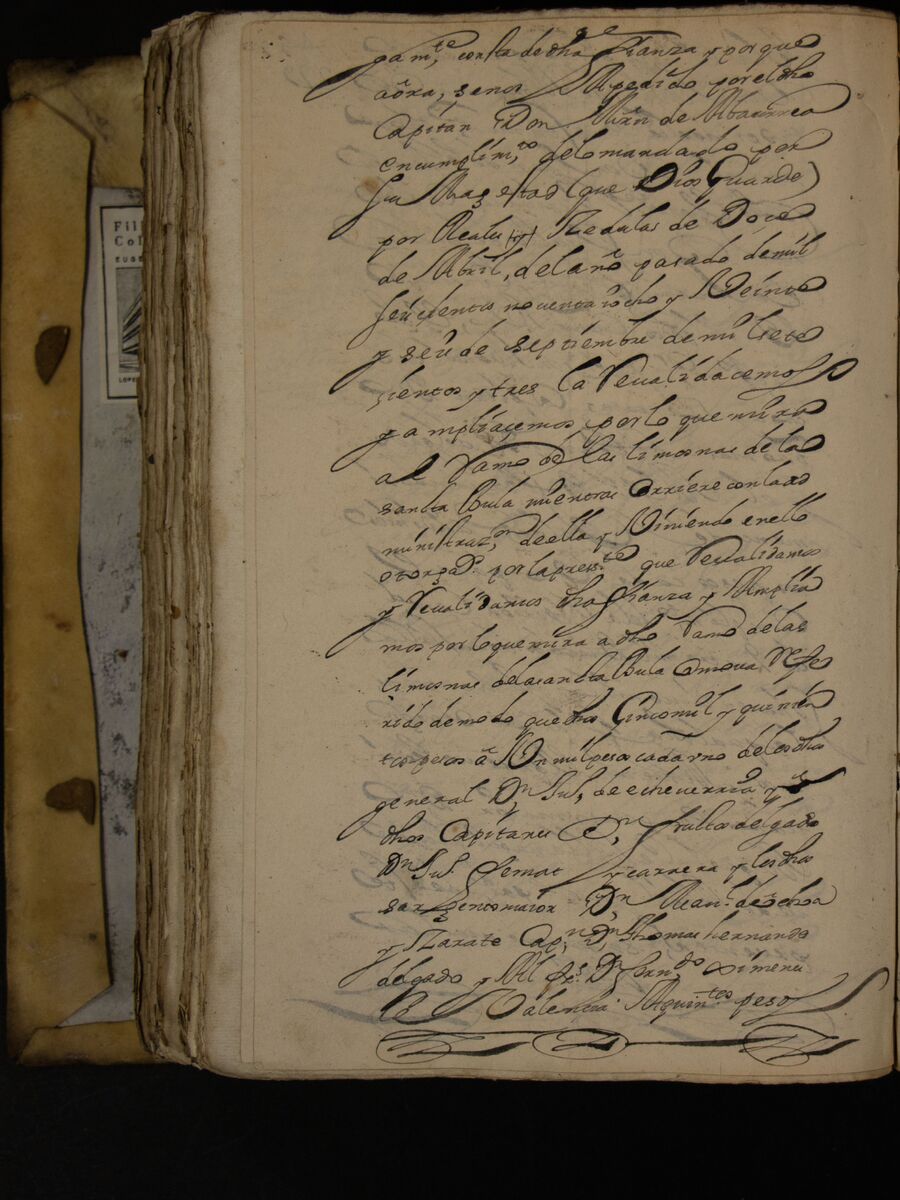 Fil
Col
EUGE
LOPE
gam.te consta de dha fianza y porque
aõra, se nos A pedido por el dho
Capitan Don Mrñ de
en cumplim.to de lo mandado por
Su Magestad (que Dios Guarde)
por Reales Zedulas de Doce
de Abril, del año pasado de mil
seiscientos noventa iõcho y Veinte
y seis de septiembre de mil sete
sientos y tres la Revalidacemos
y ampliaçemos por lo que mira
al Ramo de las limosnas de la
sancta Bula mientras corriere con la ad
ministraz.on de ella y Viniendo en ello
otorga.s por la press.te que Revalidamos
y Revalidamos dha fianza y Amplia
mos por lo que mira a dho Ramo de las
limosnas de la sancta Bula como va Refe
rido de modo que dhos Cinco mil y quinien
tos pesos â Un mil pesos cada uno de los dhos
general Dn de echeverria y
dhos Capitanes Dn delgado
Dn y carrera y los dhos
sargento maior Dn Man.l de õchoa
y Zarate Cap.n Dn Thomas hernandes
delgado y Alfz. Dn fern.do ximenes
Valencia A quin.tos pesos